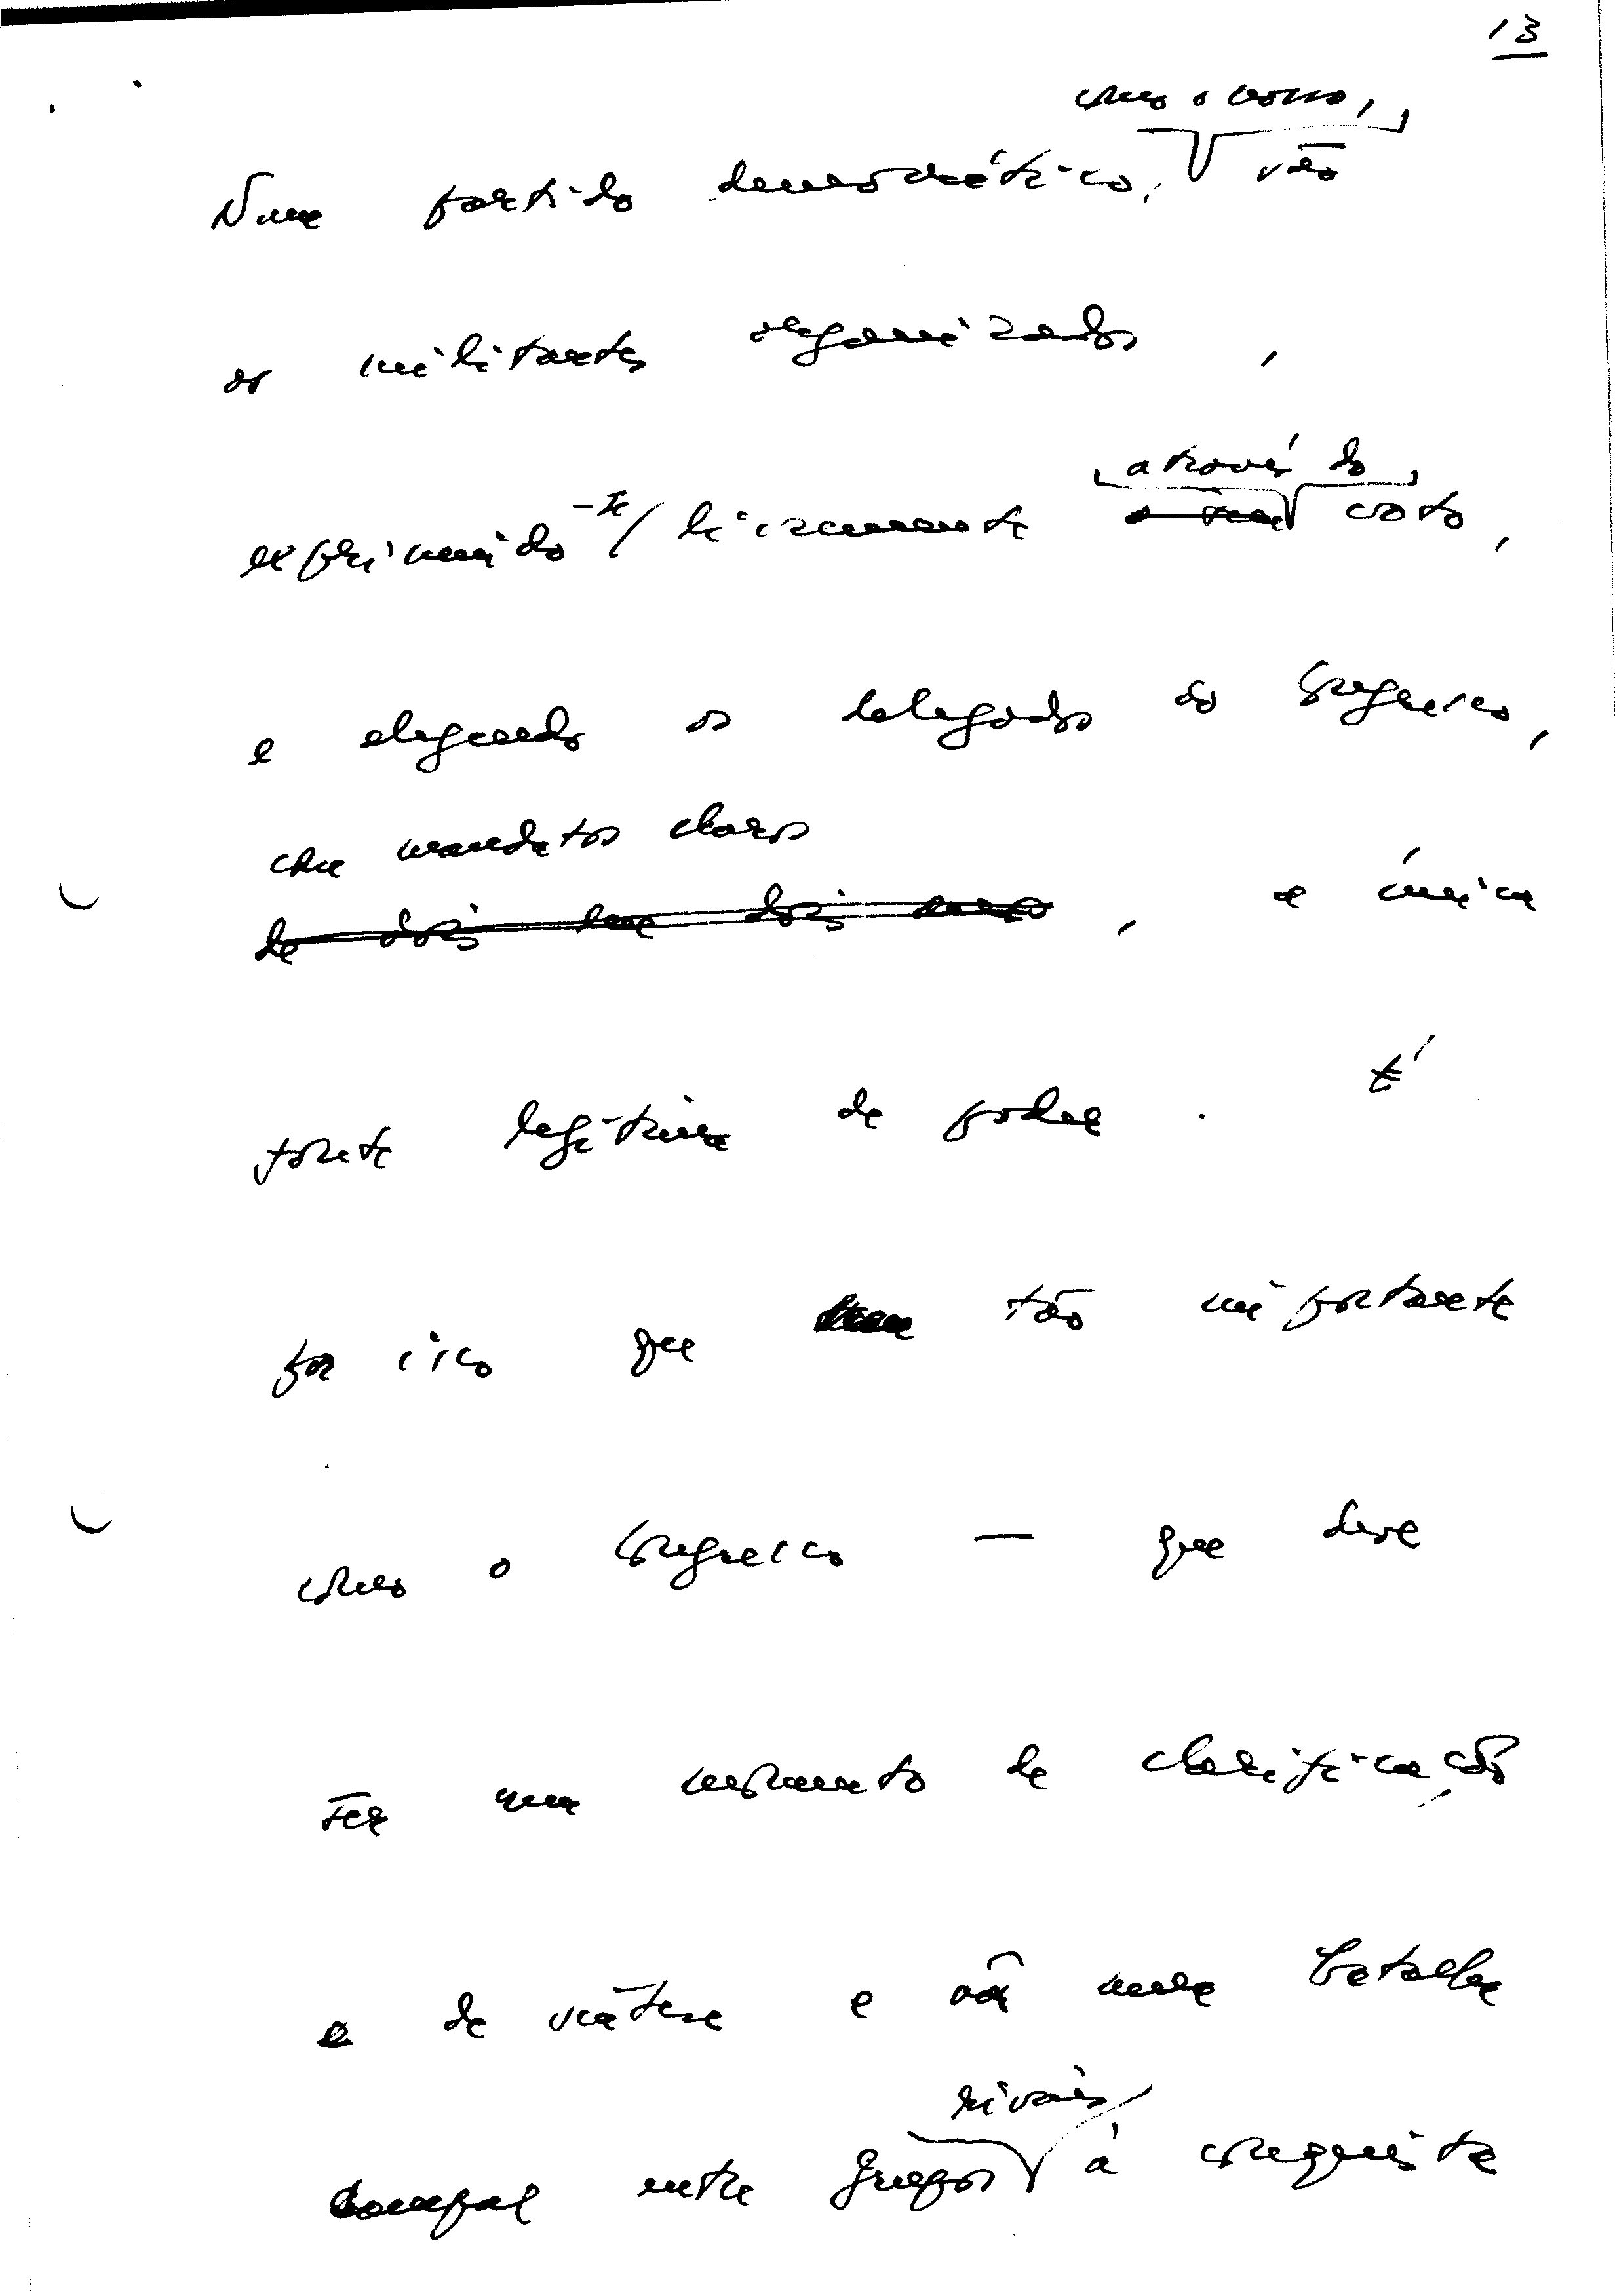 13
como o nosso,
Num partido democrático, são
os militantes organizados,
-se
exprimindo / livremente através do voto,
e elegendo os delegados ao Congresso,
com mandatos claros
, a única
fonte legítima de poder. É
por isso que tão importante
como o Congresso — que deve
ser um momento de clarificação
e de síntese e não uma batalha
rivais
campal entre grupos à conquista